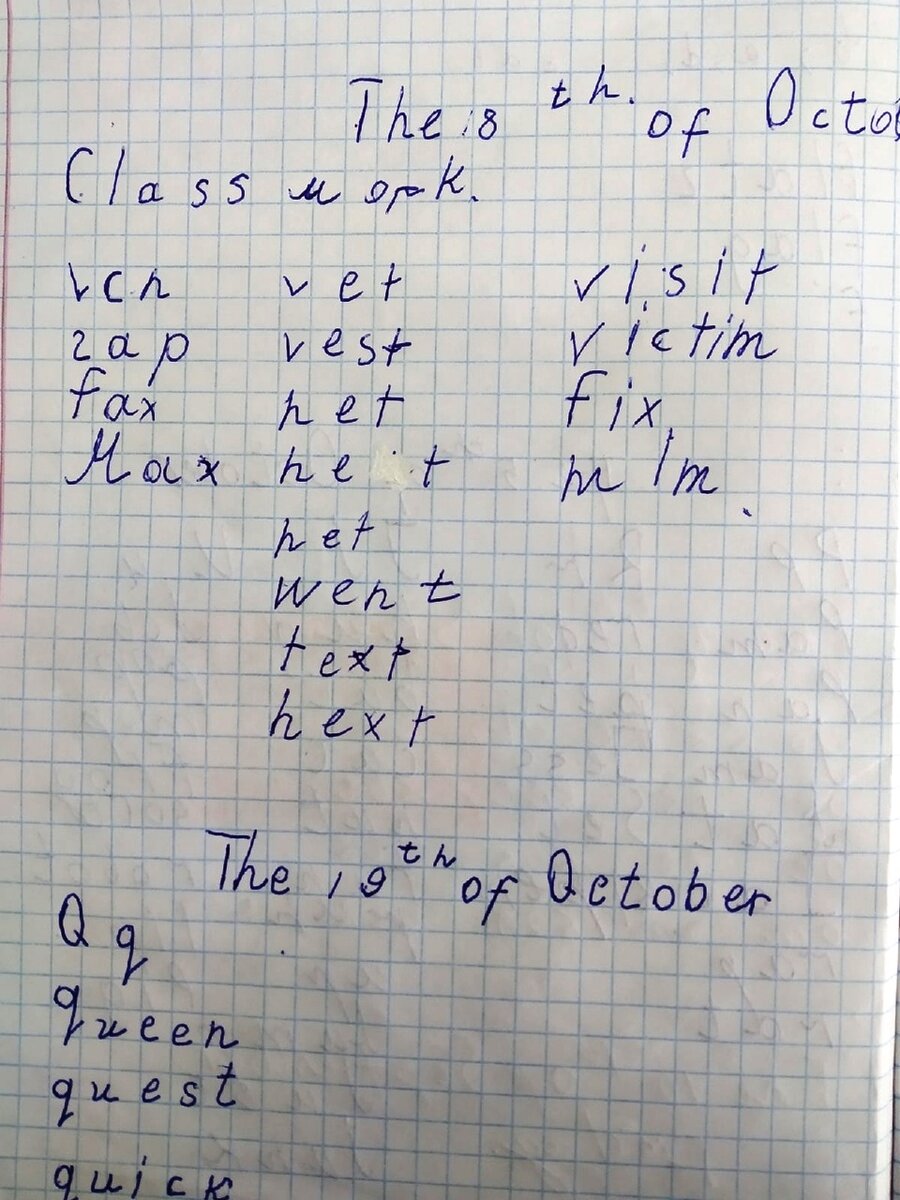 The 18 th. of Octob
Class work.
van vet visit
zap vest victim
fax net fix
Max ne t
net
went
text
next
The 19th of October
Q q
queen
quest
quick